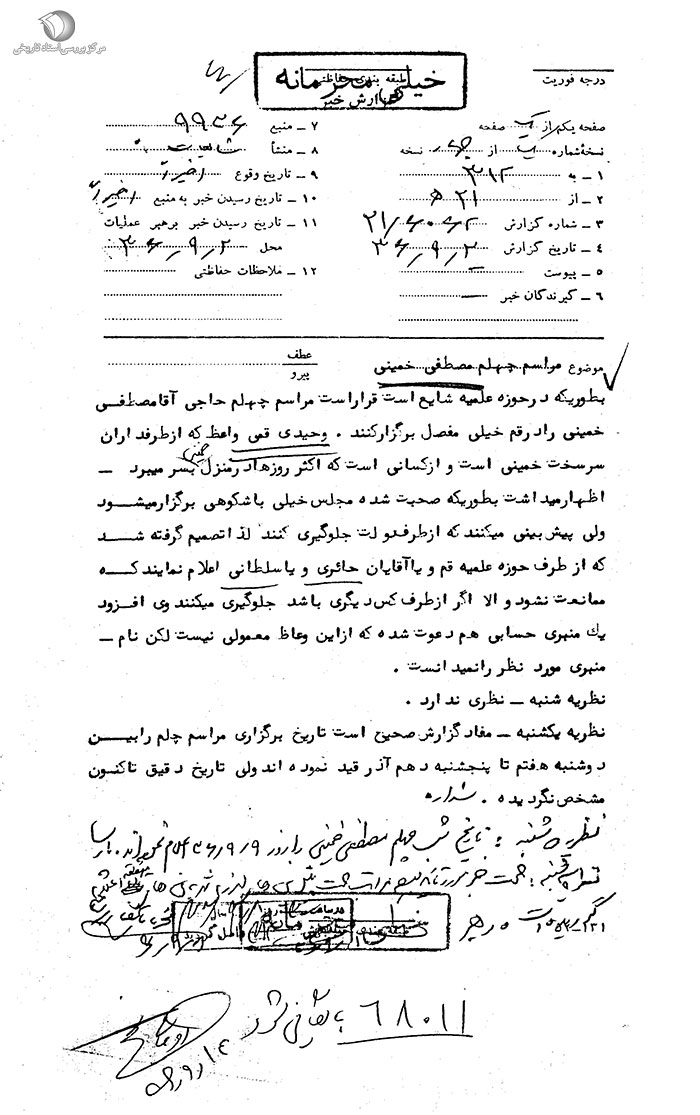 مرکز بررسی اسناد تاریخی
طبقه بندی حفاظتی
خیلی محرمانه
گزارش خبر
درجه فوریت
صفحه یک از یک صفحه
نسخه شماره از نسخه
۱ – به ۳۱۲
۲ – از ۲۱
۳ – شماره گزارش
۴ – تاریخ گزارش ۳۶/۹/۲
۵ – پیوست
۶ – گیرندگان خبر
۷ – منبع ۹۹۳۶
۸ – منشأ شایعات
۹ – تاریخ وقوع اخیراً
۱۰ – تاریخ رسیدن خبر به منبع اخیراً
۱۱ – تاریخ رسیدن خبر برهبر عملیات
محل ۳۶/۹/۲
۱۲ – ملاحظات حفاظتی
موضوع مراسم چهلم مصطفی خمینی
عطف
پیرو
بطوریکه در حوزه علمیه شایع است قرار است مراسم چهلم حاجی آقا مصطفی
خمینی را در قم خیلی مفصل برگزار کنند . وحیدی قمی واعظ که از طرفداران
سرسخت خمینی است و از کسانی است که اکثر روزها در منزل خمینی بسر میبرد –
اظهار میداشت بطوریکه صحبت شده مجلس خیلی باشکوهی برگزار میشود
ولی پیش بینی میکنند که از طرف دولت جلوگیری کنند لذا تصمیم گرفته شد
که از طرف حوزه علمیه قم و یا آقایان حائری و یا سلطانی اعلام نمایند که
ممانعت نشود و الا اگر از طرف کس دیگری باشد جلوگیری میکنند وی افزود
یك منبری حسابی هم دعوت شده که از این وعاظ معمولی نیست لکن نام –
منبری مورد نظر را نمیدانست .
نظریه شنبه – نظری ندارد .
نظریه یکشنبه – مفاد گزارش صحیح است تاریخ برگزاری مراسم چلم را بین
دوشنبه هفتم تا پنجشنبه دهم آذر قید نموده اند ولی تاریخ دقیق تاکنون
مشخص نگردیده .
نظریه ۳ شنبه : تاریخ شب چهلم مصطفی خمینی را روز ۳۶/۹/۹ اعلام نموده‌اند.
۶۸۰۱۱ بایگانی شود